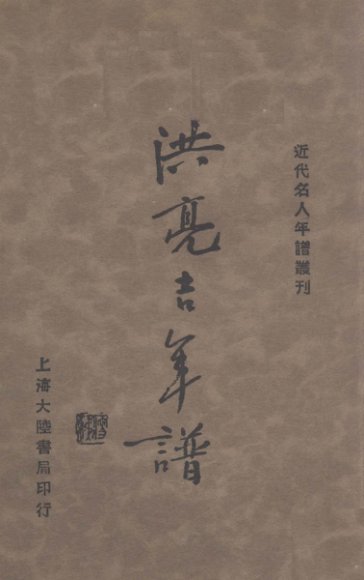 近代名人年譜叢刊
洪亮吉年譜
上海大陸書局印行